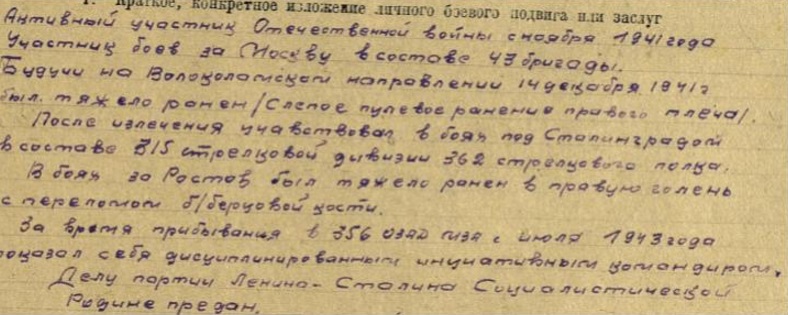 Краткое, конкретное изложение личного боевого подвига или заслуг
Активный участник Отечественной войны с ноября 1941 года
Участник боев за Москву в составе 43 бригады.
Будучи на Волоколамском направлении 14 декабря 1941 г
был тяжело ранен /Слепое пулевое ранение правого плеча/.
После излечения учавствовал в боях под Сталинградом
в составе 315 стрелковой дивизии 362 стрелкового полка.
В боях за Ростов был тяжело ранен в правую голень
с переломом б/берцовой кости.
За время прибывания в 356 с июля 1943 года
показал себя дисциплинированным инициативным командиром.
Делу партии Ленина-Сталина Социалистической
Родине предан.